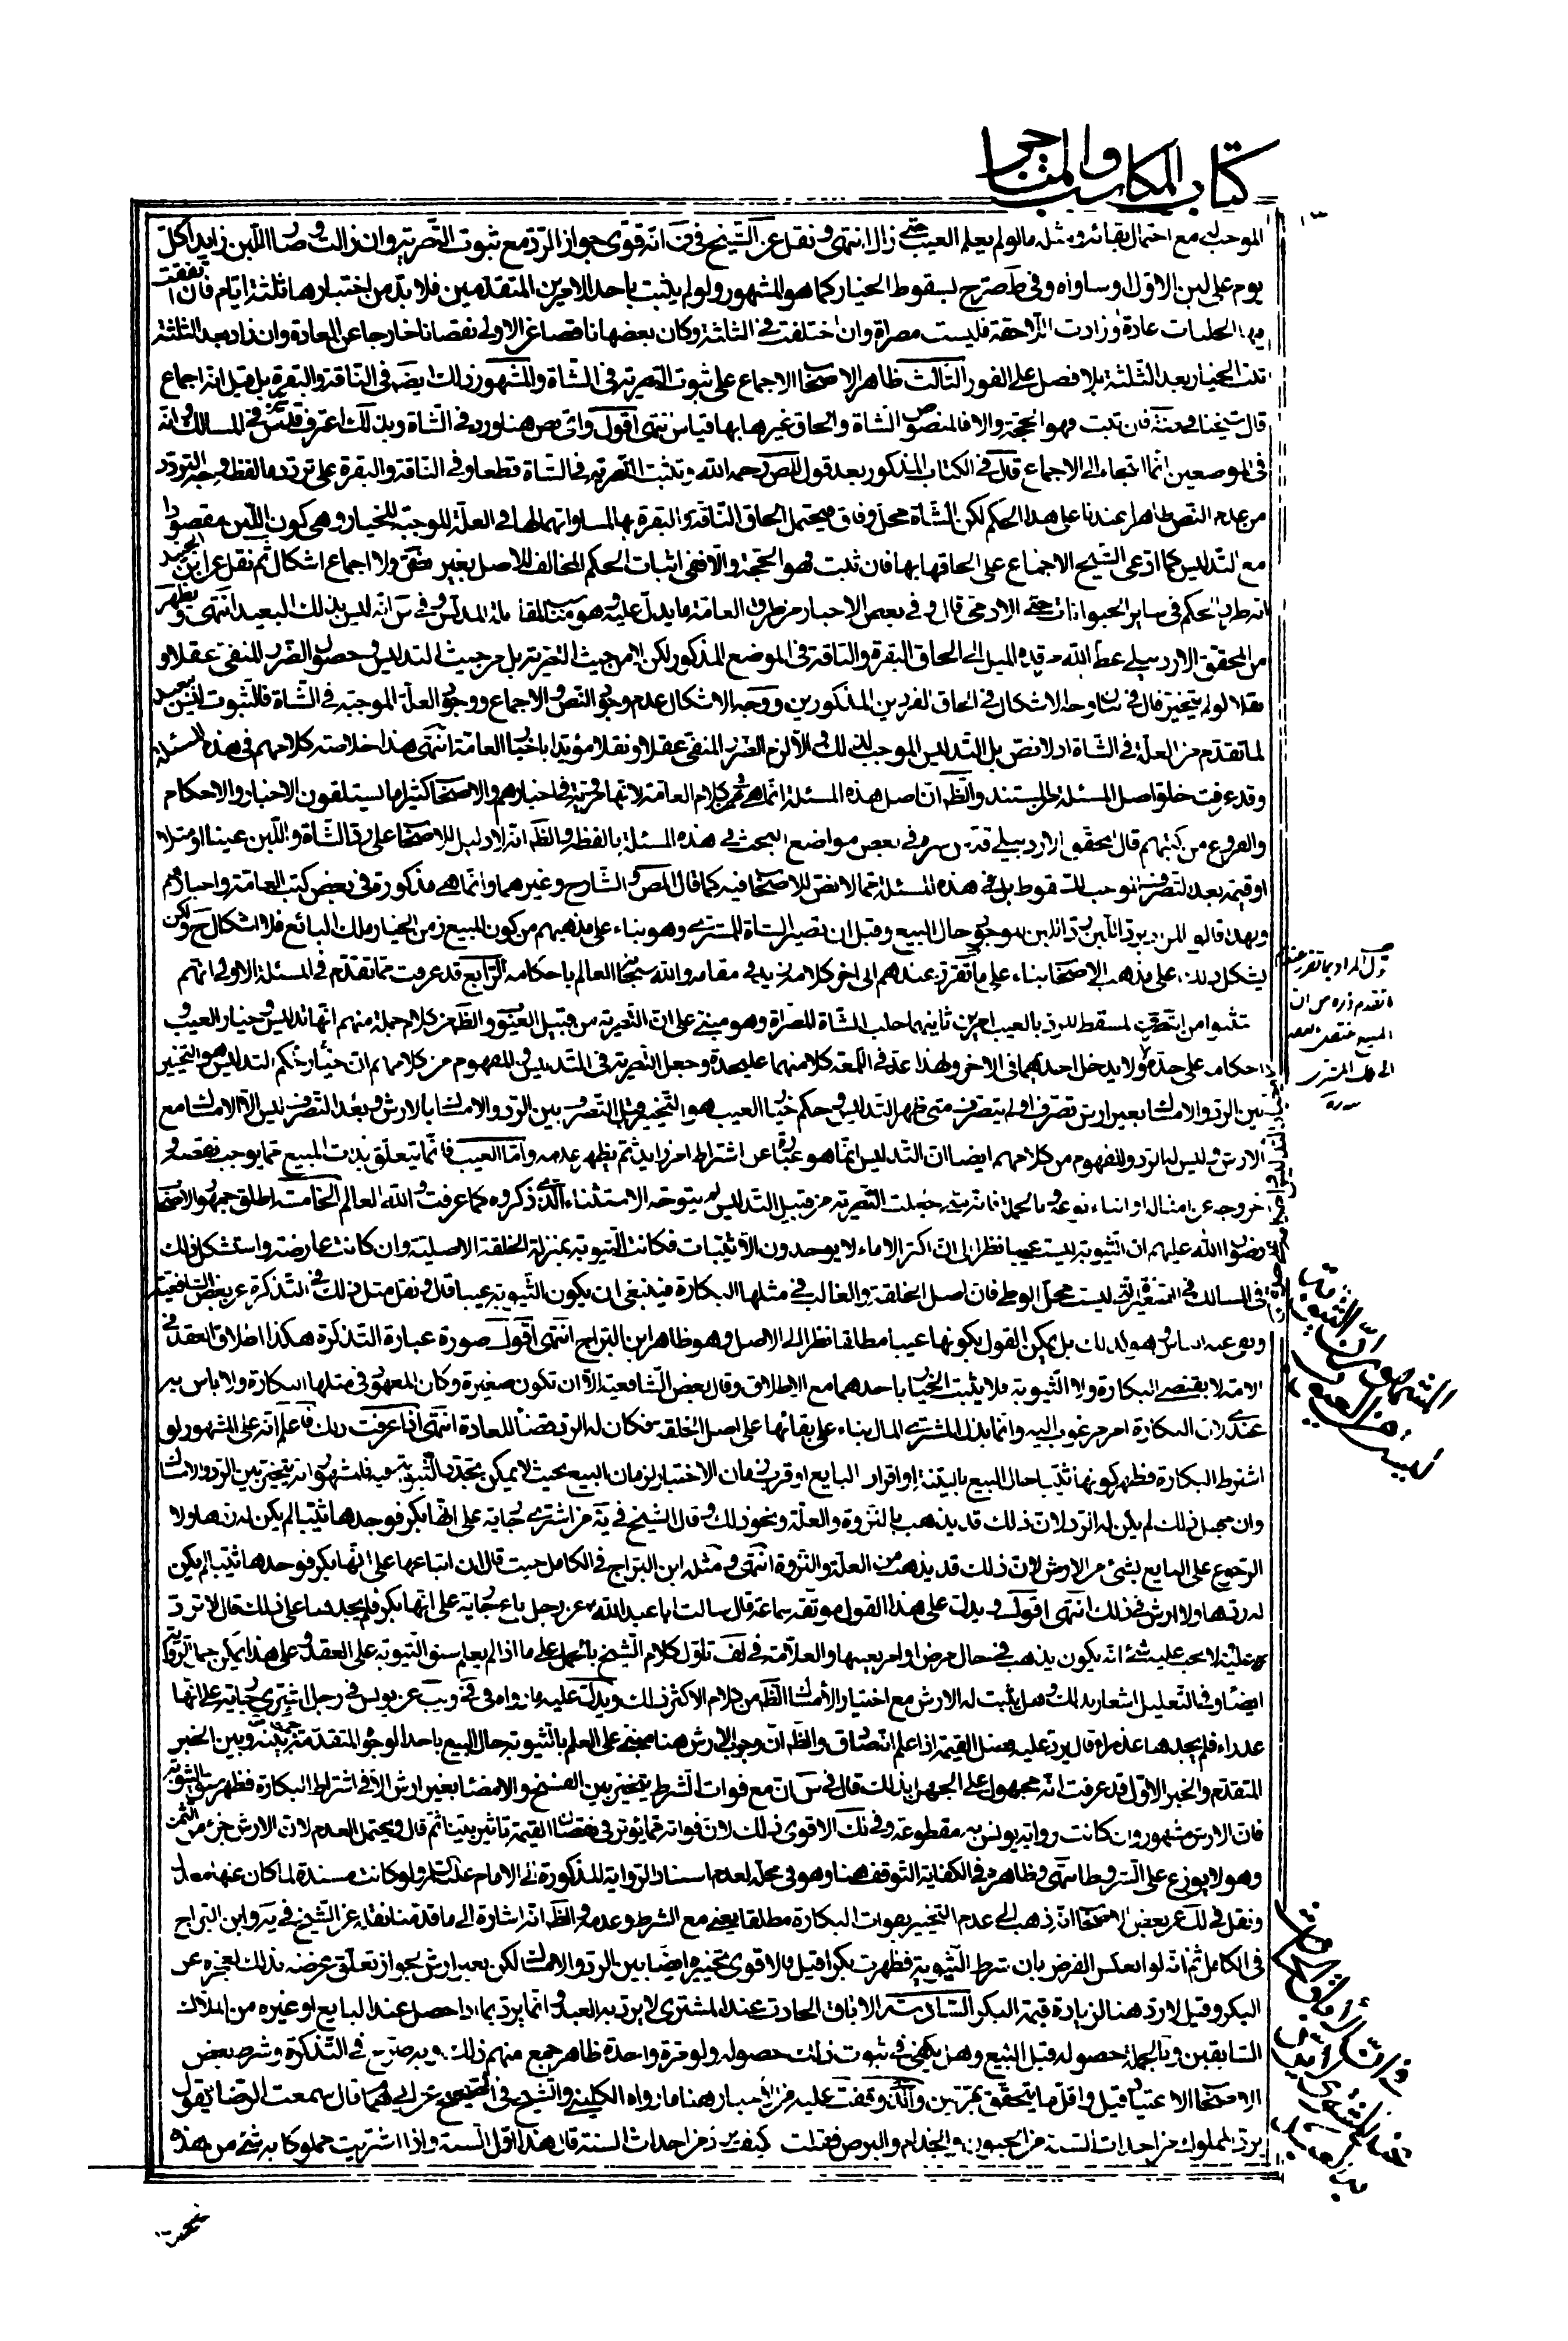 كتاب المكاسب والمتاجر
الموجب له مع احتمال بقائه ومثله ما لو لم يعلم العيب حتى زال انتهى ونقل عن الشيخ في ف انه قوى جواز الرد مع ثبوت التصرية وان زالت وصار اللبن زايدا كل
يوم على لبن الاول او ساواه وفي ط صرح بسقوط الخيار كما هو المشهور ولو لم يثبت باحد الامرين المتقدمين فلا بد من اختبارها ثلثة ايام فان اتفقت
فيها الحلبات عادة او زادت اللاحقة فليست مصراة وان اختلفت في الثلثة وكان بعضها ناقصا عن الاولى نقصانا خارجا عن العادة وان زاد بعد الثلثة
ثبت الخيار بعد الثلثة بلا فصل على الفور الثالث ظاهر الاصحاب الاجماع على ثبوت التصرية في الشاة والمشهور ذلك ايضا في الناقة والبقرة بل قيل انه اجماع
قال شيخنا في فان ثبت فهو الحجة والا فالمنصوص الشاة والحاق غيرها بها قياس انتهى اقول واي نص هنا ورد في الشاة وبذلك اعترف في المسالك وانه
في الموضعين انما التجاء الى الاجماع قال في الكتاب المذكور بعد قول المص رحمه الله وتثبت التصرية في الشاة قطعا وفي الناقة والبقرة على تردد ما لفظه وجه التردد
من عدم النص ظاهرا عندنا على هذا الحكم لكن الشاة محل وفاق فيحتمل الحاق الناقة والبقرة بها لمساواتهما لها في العلة الموجبة للخيار وهي كون اللبن مقصودا
مع التدليس كما ادعى الشيخ الاجماع على الحاقها بها فان ثبت فهو الحجة والا ففي اثبات الحكم المخالف للاصل بغير نص ولا اجماع اشكال ثم نقل عن ابن الجنيد
انه طرد الحكم في ساير الحيوانات حتى الادمي قال وفي بعض الاخبار من طرق العامة ما يدل عليه وهو مناسب لمقابلة المدلس وفي س انه ليس بذلك البعيد انتهى ويظهر
من المحقق الاردبيلي عطر الله مرقده الميل الى الحاق البقرة والناقة في الموضع المذكور لكن لا من حيث التصرية بل من حيث التدليس وحصول الضرر المنفي عقلا و
نقلا لو لم يتخير قال في وجه الاشكال في الحاق الفردين المذكورين ووجه الاشكال عدم وجود النص والاجماع ووجود العلة الموجبة في الشاة فالثبوت ليس ببعيد
لما تقدم من العلة في الشاة اذ لا نص بل التدليس الموجب لذلك والا لزم الضرر المنفي عقلا ونقلا مؤيدا باخبار العامة انتهى هذا خلاصة كلامهم في هذه المسئلة
وقد عرفت خلو اصل المسئلة من المستند والظ ان اصل هذه المسئلة انما هي من كلام العامة لانها مروية في اخبارهم والاصحاب كثيرا ما يستلقون الاخبار والاحكام
والفروع من كتبهم قال المحقق الاردبيلي قدس سره في بعض مواضع البحث في هذه المسئلة ما لفظه والظ انه لا دليل للاصحاب على رد الشاة واللبن عينا او مثلا
او قيمة بعد التصرف الموجب للسقوط بل في هذه المسئلة مما لا نص للاصحاب فيه كما قال المص والشارح وغيرهما وانما هي مذكورة في بعض كتب العامة واخبارهم
وبهذا قالوا المراد برد اللبن رد اللبن الموجود حال البيع وقبل ان تصير الشاة للمشتري وهو بناء على مذهبهم من كون المبيع زمن الخيار ملك البائع فلا اشكال ح ولكن
يشكل ذلك على مذهب الاصحاب بناء على ما تقرر عندهم الى اخر كلامه زيد في مقامه والله سبحانه العالم باحكامه الرابع قد عرفت مما تقدم في المسئلة الاولى انهم
استثنوا من التصرف المسقط للرد بالعيب امرين ثانيهما حلب الشاة المصراة وهو مبني على ان التصرية من قبيل العيوب والظ من كلام جملة منهم انها تدليس وخيار العيوب
واحكامه على حدة ولا يدخل احدهما في الاخر ولهذا عد في اللمعة كلا منهما على حدة وجعل التصرية في التدليس والمفهوم من كلامهم ان خيار حكم التدليس هو التخيير
بين الرد والامساك بغير ارش تصرف او لم يتصرف متى ظهر التدليس وحكم خيار العيب هو التخيير قبل التصرف بين الرد والامساك بالارش وبعد التصرف ليس الا الامساك مع
الارش وليس له الرد والمفهوم من كلامهم ايضا ان التدليس انما هو عبارة عن اشتراط امر زايد ثم يظهر عدمه واما العيب فانما يتعلق بذات المبيع مما يوجب نقصه و
خروجه عن امثاله او ابناء نوعه وبالجملة فانه متى جعلت التصرية من قبيل التدليس لم يتوجه الاستثناء الذي ذكروه كما عرفت والله العالم الخامسة اطلق جمهور الاصحاب
رضوان الله عليهم ان الثيوبة ليست عيبا نظرا الى ان اكثر الاماء لا يوجدون الا ثيبات فكانت الثيوبة بمنزلة الخلقة الاصلية وان كانت عارضة واستشكل ذلك
في المسالك في الصغيرة التي ليست محل الوطي فان اصل الخلقة والغالب في مثلها البكارة فينبغي ان يكون الثيوبة عيبا قال ونقل مثل ذلك في التذكرة عن بعض الشافعية
ونفى عنه الباس وهو كذلك بل يمكن القول بكونها عيبا مطلقا نظرا الى الاصل وهو ظاهر ابن البراج انتهى اقول صورة عبارة التذكرة هكذا اطلاق العقد في
الامة لا يقتضي البكارة ولا الثيوبة فلا يثبت الخيار باحدهما مع الاطلاق وقال بعض الشافعية الا ان تكون صغيرة وكان المعهود في مثلها البكارة ولا باس به
عندي لان البكارة امر مرغوب اليه وانما بذل المشتري المال بناء على بقائها على اصل الخلقة فكان له الرد قضاء للعادة انتهى اذا عرفت ذلك فاعلم انه على المشهور لو
اشترط البكارة فظهر كونها ثيبا حال البيع بالبينة او اقرار البايع او قرب زمان الاختبار لزمان البيع بحيث لا يمكن تجدد الثيوبة فيه فالمشهور انه يتخير بين الرد والامساك
وان جهل ذلك لم يكن له الرد لان ذلك قد يذهب بالنزوة والعلة ونحو ذلك وقال الشيخ في ية من اشترى جارية على انها بكر فوجدها ثيبا لم يكن له ردها ولا
الرجوع على البايع بشئ من الارش لان ذلك قد يذهب من العلة والنزوة انتهى ومثله ابن البراج في الكامل حيث قال ان ابتاعها على انها بكر فوجدها ثيبا لم يكن
له ردها ولا ارش في ذلك انتهى اقول ويدل على هذا القول موثقة سماعة قال سالت ابا عبد الله ع عن رجل باع جارية على انها بكر فلم يجدها على ذلك قال لا ترد
عليه ولا يجب عليه شئ انه يكون يذهب في حال مرض او امر يصيبها والعلامة في لف تاول كلام الشيخ بالحمل على ما اذا لم يعلم سبق الثيوبة على العقد وعلى هذا يمكن حمل الرواية
ايضا وفي التعليل اشعار بذلك وهل يثبت له الارش مع اختيار الامساك الظ من كلام الاكثر ذلك ويدل عليه ما رواه في في ويب عن يونس في رجل اشترى جارية على انها
عذراء فلم يجدها عذراء قال يرد عليه فضل القيمة اذا علم انه صادق والظ ان وجوب الارش هنا مبني على العلم بالثيوبة حال البيع باحد الوجوه المتقدمة جمعا بينه وبين الخبر
المتقدم والخبر الاول قد عرفت انه محمول على الجهل بذلك قال في س ان مع فوات الشرط يتخير بين الفسخ والامضاء بغير ارش الا في اشتراط البكارة فظهر سبق الثيوبة
فان الارش مشهور وان كانت رواية يونس به مقطوعة وفي لك الاقوى ذلك لان فواته مما يؤثر في نقصان القيمة تاثيرا بينا ثم قال ويحتمل العدم لان الارش جزء من الثمن
وهو لا يوزع على الشروط انتهى وظاهره في الكفاية التوقف هنا وهو في محله لعدم اسناد الرواية المذكورة الى الامام عليه السلم ولو كانت مسندة لما كان عنها معدل
ونقل في لك عن بعض الاصحاب انه ذهب الى عدم التخيير بفوات البكارة مطلقا يعني مع الشرط وعدمه والظ انه اشارة الى ما قدمنا نقله عن الشيخ في ية وابن البراج
في الكامل ثم انه لو انعكس الفرض بان شرط الثيوبة فظهرت بكرا قيل فالاقوى تخييره ايضا بين الرد والامساك لكن بغير ارش بجواز تعلق غرضه بذلك لعجزه عن
البكر وقيل لا رد هنا لزيادة قيمة البكر السادسة الاباق الحادث عند المشتري لا يرد به العبد وانما يرد بما اذا حصل عند البايع او غيره من الملاك
السابقين وبالجملة حصوله قبل البيع وهل يكفي في ثبوت ذلك حصوله ولو مرة واحدة ظاهر جمع منهم ذلك وبه صرح في التذكرة وشرط بعض
الاصحاب الاعتياد قيل واقل ما يتحقق بمرتين والذي وقفت عليه من الاخبار هنا ما رواه الكليني والشيخ في الصحيح عن ابي همام قال سمعت الرضا يقول
يرد المملوك من احداث السنة من الجنون والجذام والبرص فقلت كيف يرد من احداث السنة قال هذا اول السنة واذا اشتريت مملوكا به شئ من هذه
المراد بما تقرر عندهم
ما تقدم ذكره من ان
المبيع ينتقل بالعقد
الى ملك المشتري
منه ره
المشهور ان الثيوبة
ليست من العيوب